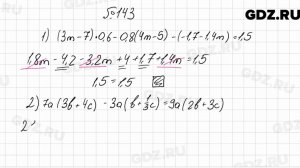 GDZ.RU
№143
1) (3m-7)·0,6-0,8(4m-5)-(-1,7-1,4m)=1,5
1,8m-4,2-3,2m+4+1,7+1,4m=1,5
1,5=1,5
2) 7a(3b+4c)-3a(b+⅓c)=9a(2b+3c)
2
GDZ.RU